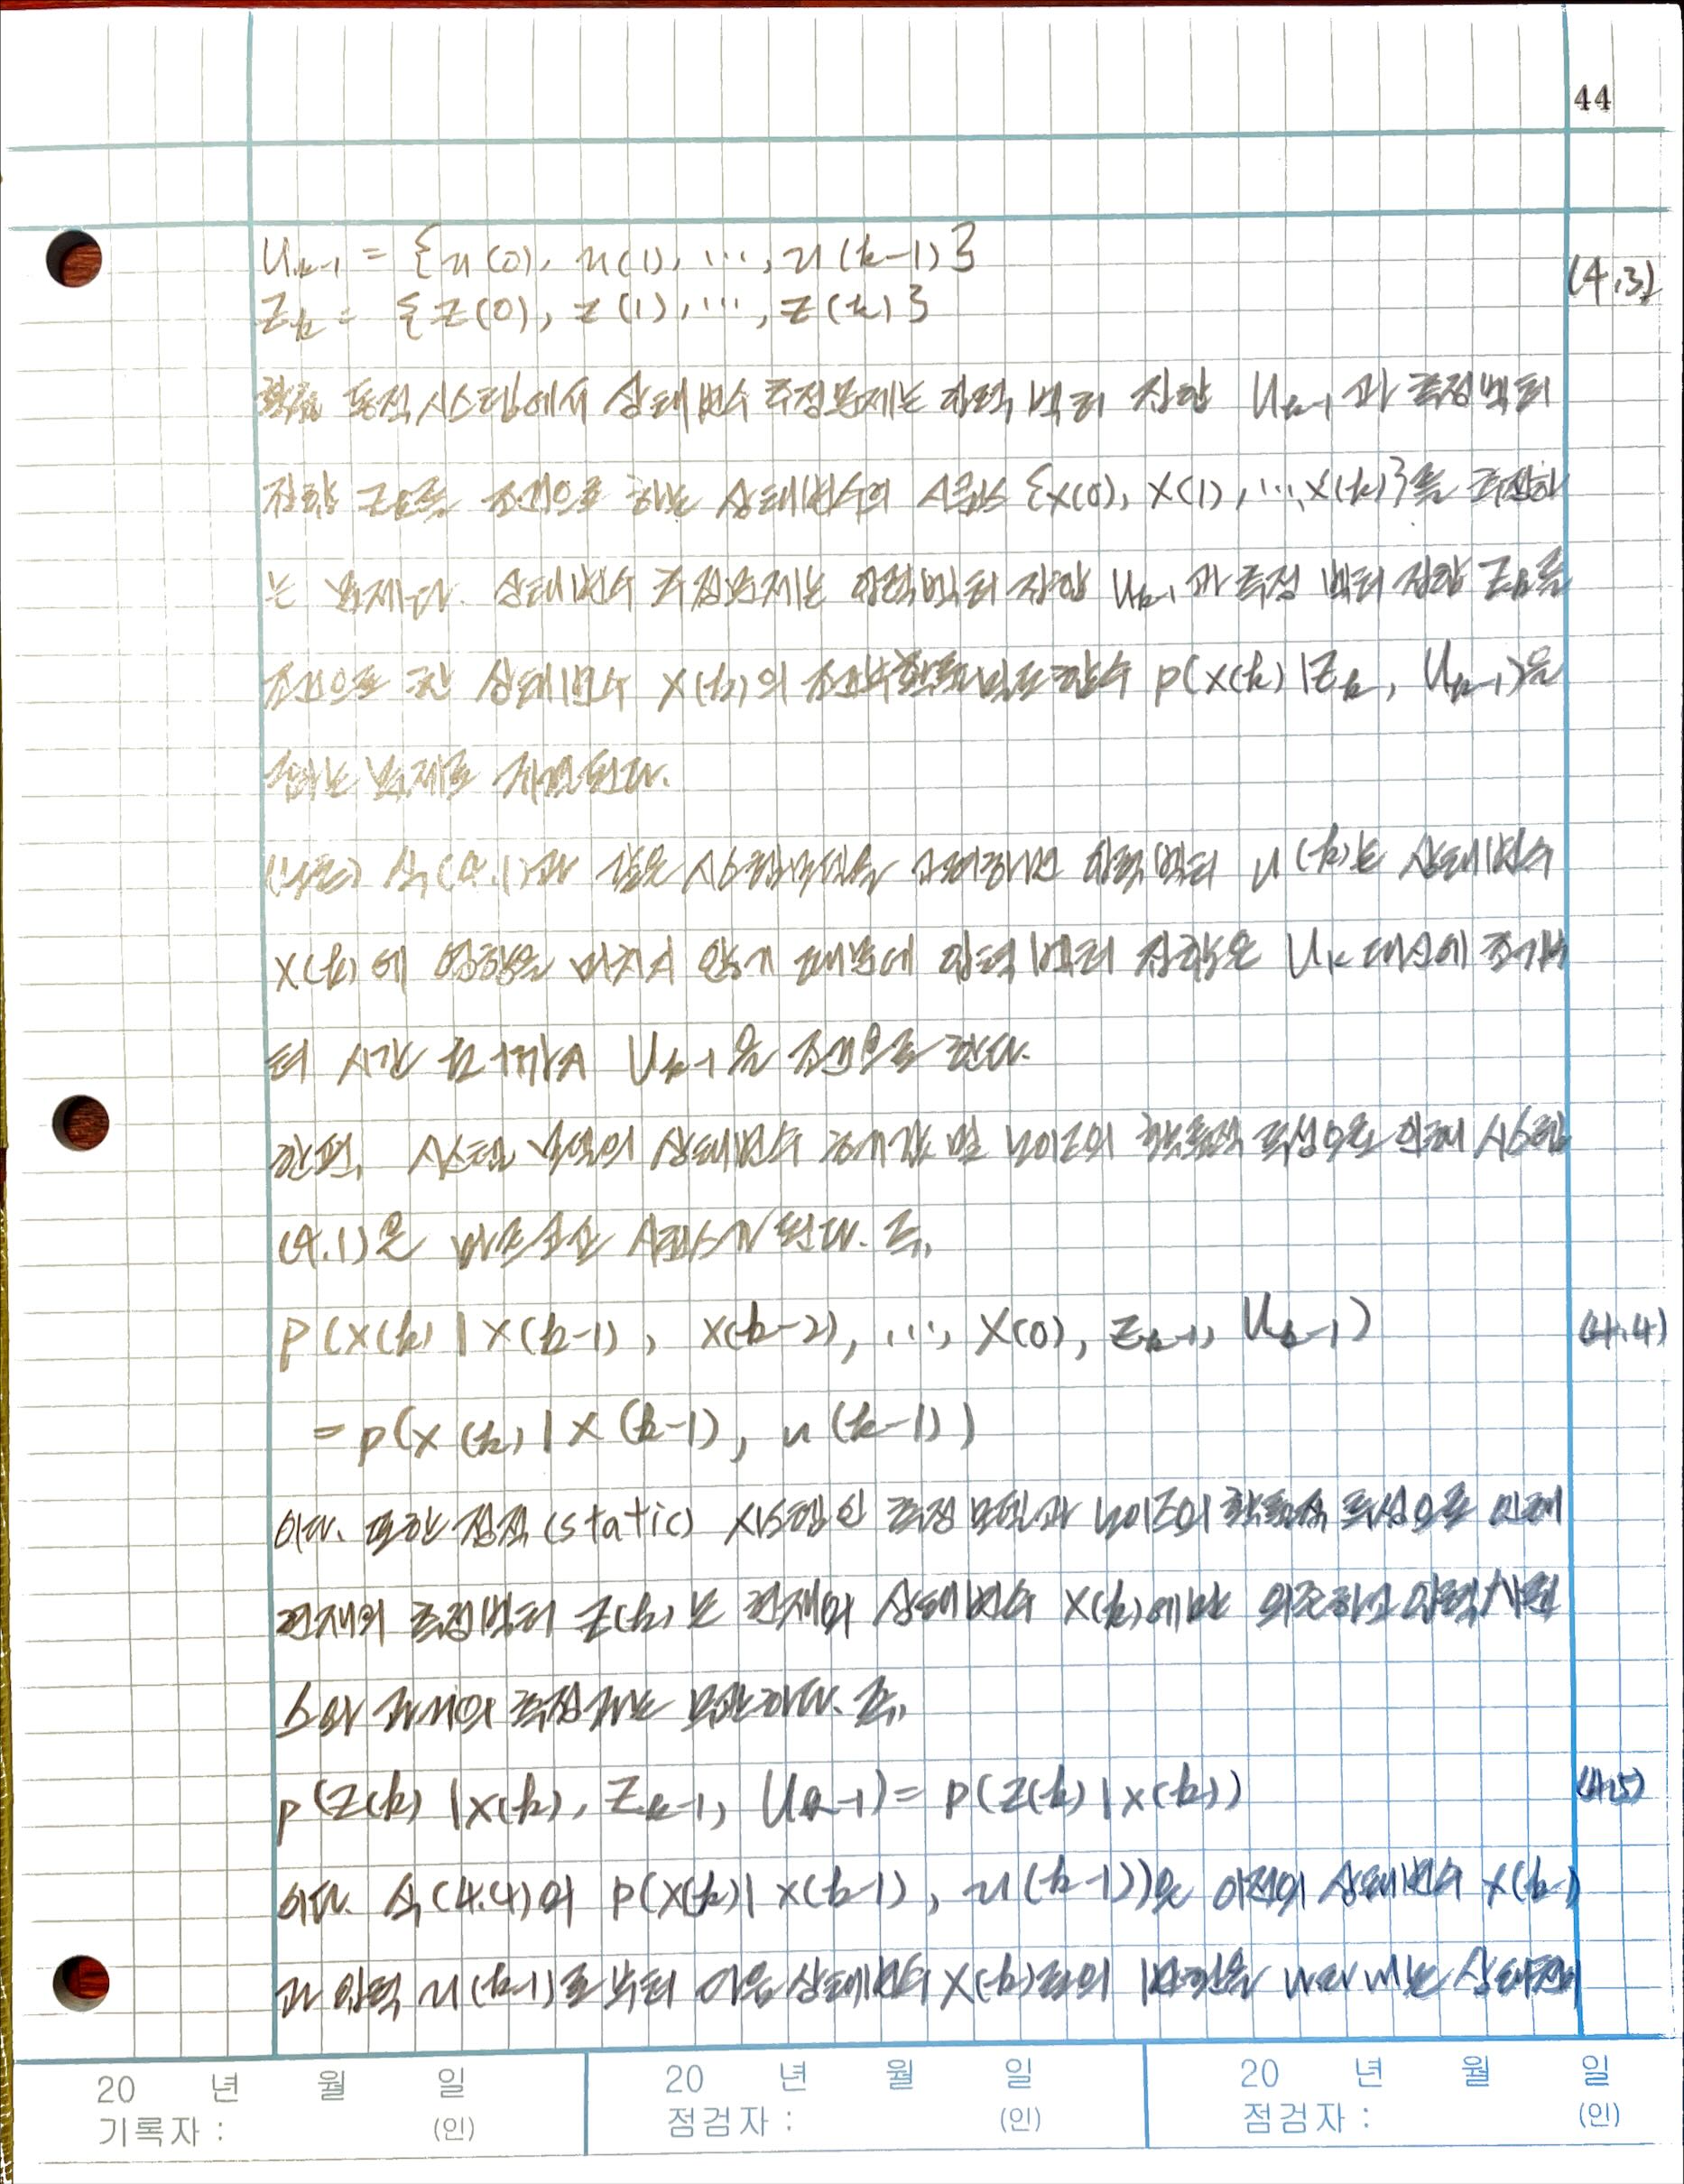 44
U_{k-1} = {u(0), u(1), ..., u(k-1)}
(4.3)
Z_k = {z(0), z(1), ..., z(k)}
확률 동적 시스템에서 상태변수 추정문제는 입력 벡터 집합 U_{k-1}과 측정벡터
집합 Z_k를 조건으로 하는 상태변수의 시퀀스 {x(0), x(1), ..., x(k)}를 추정하
는 문제다. 상태변수 추정문제는 입력벡터 집합 U_{k-1}과 측정 벡터 집합 Z_k를
조건으로 한 상태변수 x(k)의 조건부확률밀도함수 p(x(k)|Z_k, U_{k-1})을
구하는 문제로 귀결된다.
식(4.1)과 같은 시스템모델을 고려하면 입력벡터 u(k)는 상태변수
x(k)에 영향을 미치지 않기 때문에 입력 벡터 집합은 U_k 대신에 초기부
터 시간 k-1까지 U_{k-1}을 조건으로 한다.
한편, 시스템 모델의 상태변수 초기값 및 노이즈의 확률적 특성으로 인해 시스템
(4.1)은 마르코프 시퀀스가 된다. 즉,
p(x(k)|x(k-1), x(k-2), ..., x(0), Z_{k-1}, U_{k-1})
(4.4)
= p(x(k)|x(k-1), u(k-1))
이다. 또한 정적(static) 시스템인 측정 모델과 노이즈의 확률적 특성으로 인해
현재의 측정벡터 z(k)는 현재의 상태변수 x(k)에만 의존하고 입력시퀀
스와 과거의 측정과는 무관하다. 즉,
p(z(k)|x(k), Z_{k-1}, U_{k-1}) = p(z(k)|x(k))
(4.5)
이다. 식(4.4)의 p(x(k)|x(k-1), u(k-1))은 이전의 상태변수 x(k-1)
과 입력 u(k-1)로부터 다음 상태변수 x(k)로의 변환을 나타내는 상태천이
20 년 월 일
기록자 : (인)
20 년 월 일
점검자 : (인)
20 년 월 일
점검자 : (인)